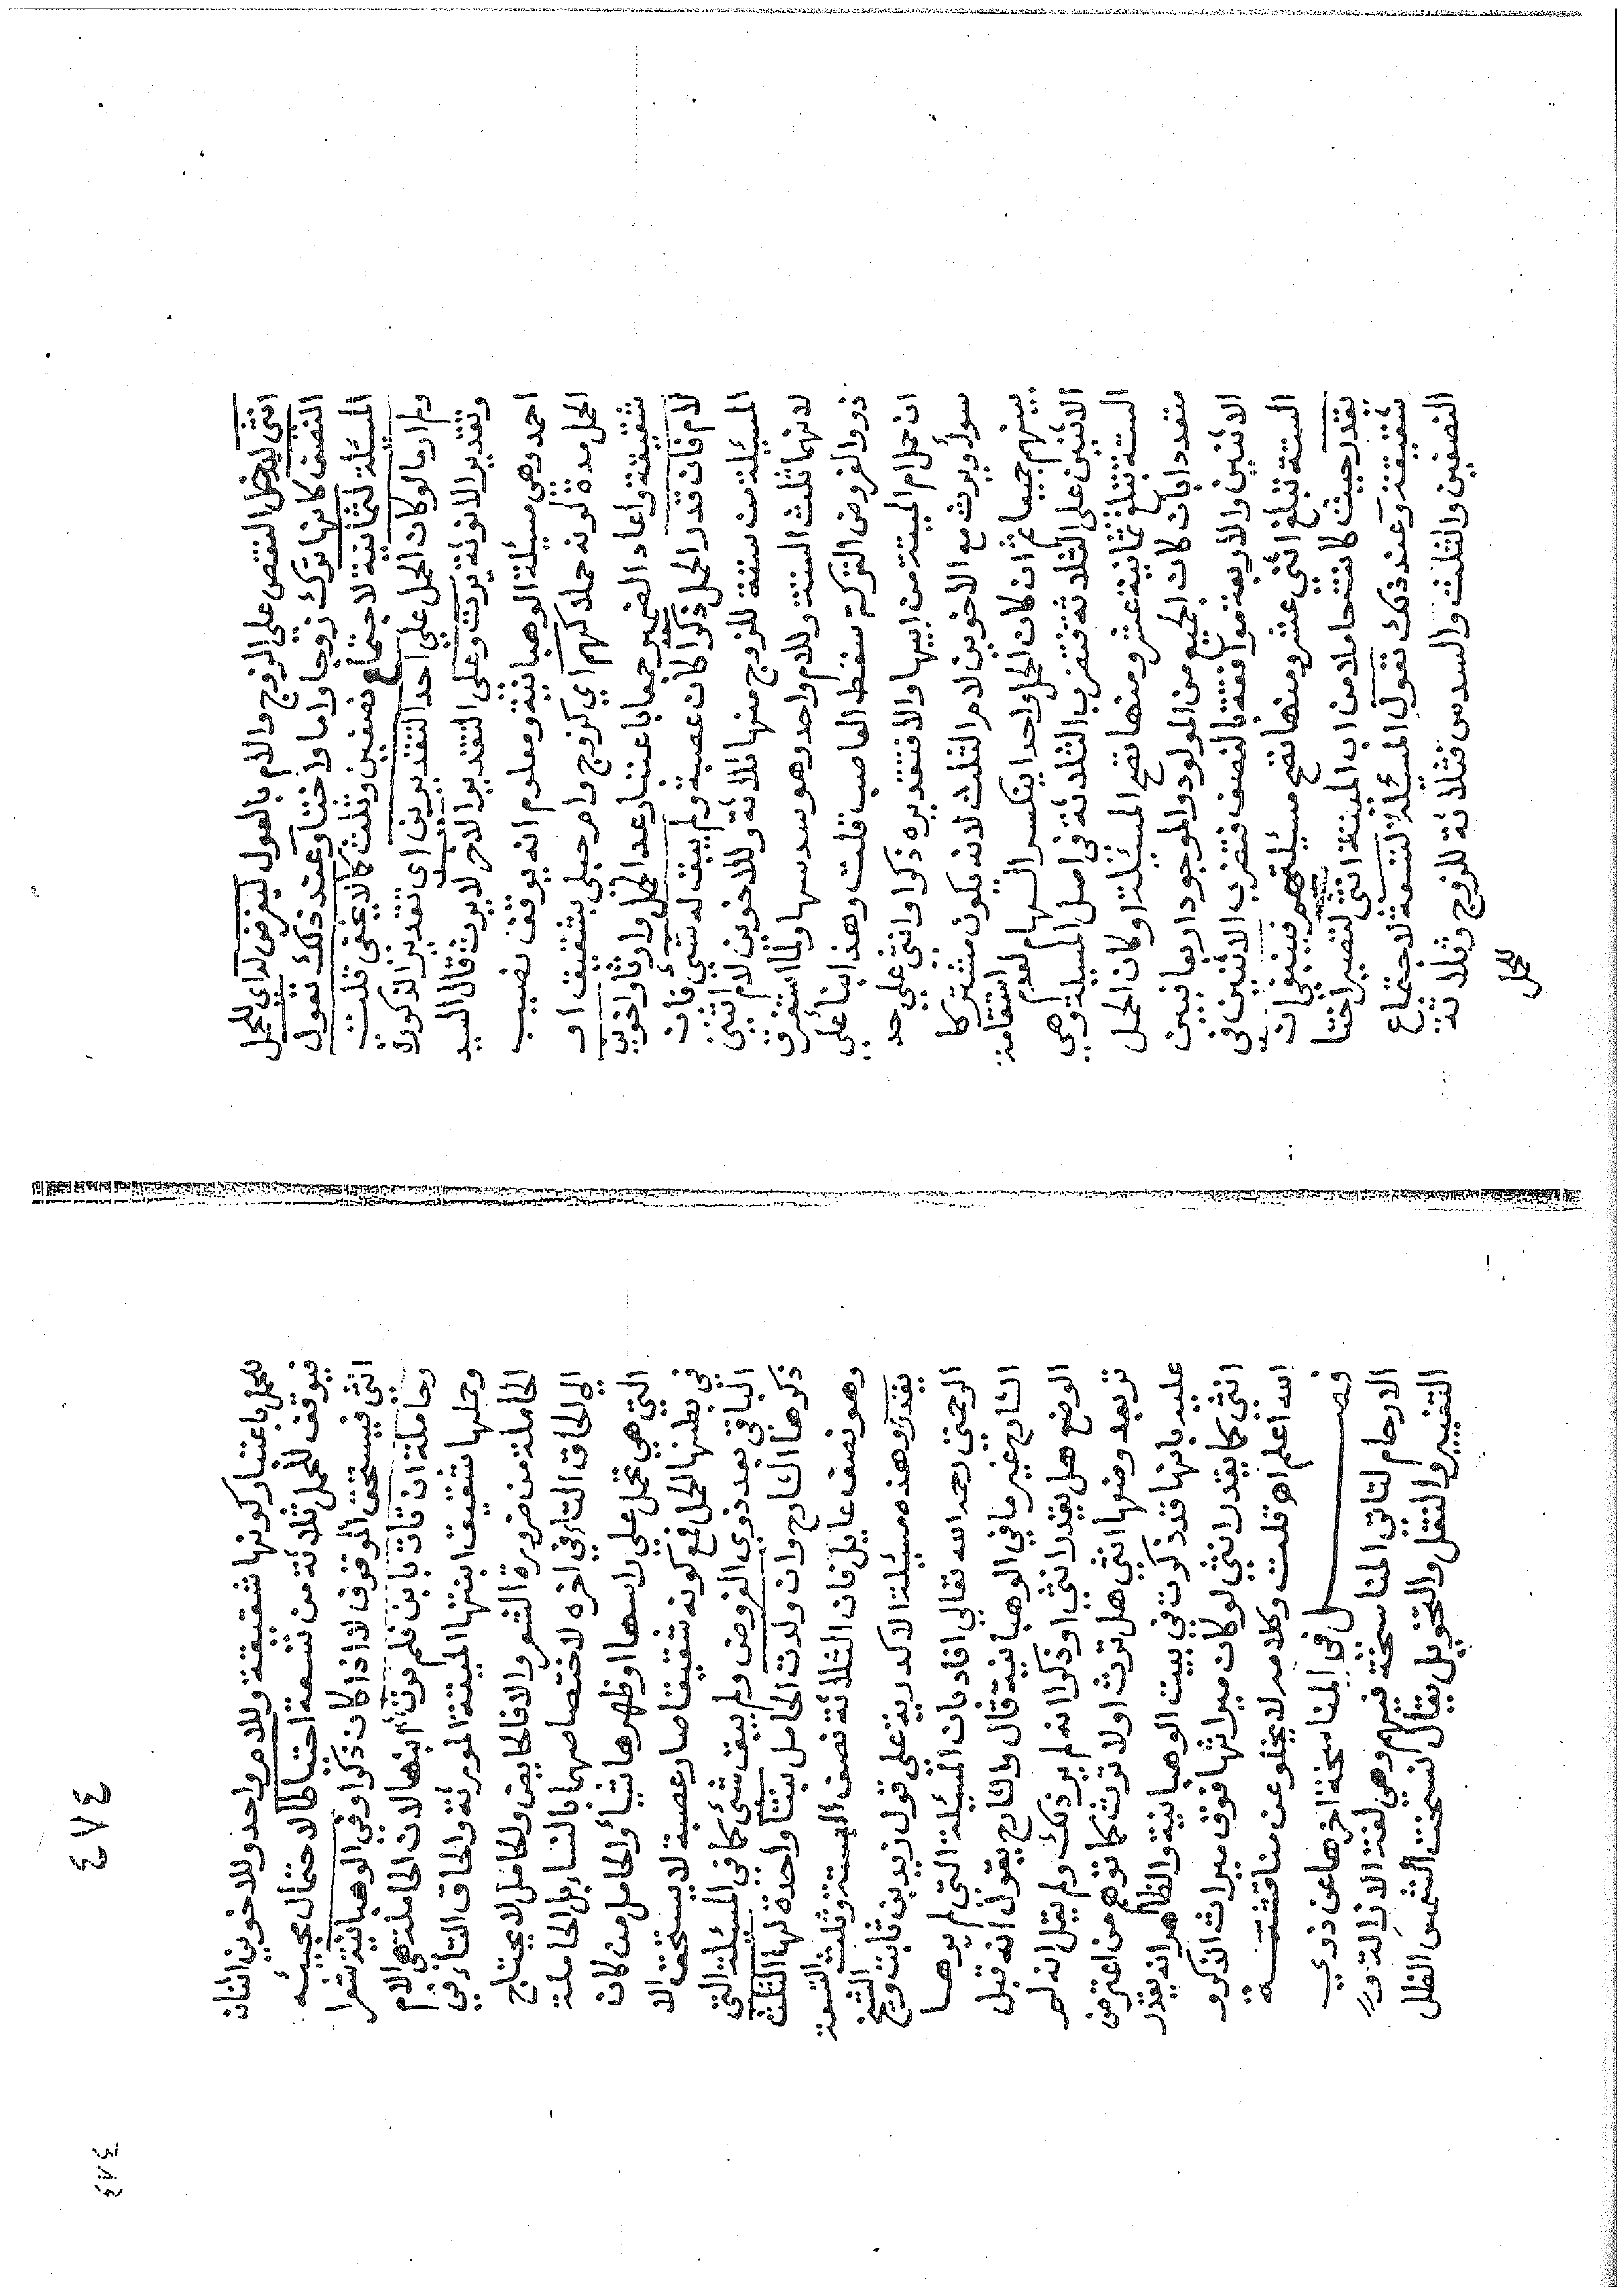 انثى ليدخل النقص على الزوج والام بالعول ليفرض له اي للحمل
النصف كانها ترك زوجا واما واختا وعند ذلك تعول
المسئلة لثمانية لاجتماع نصفين وثلث كما لا يخفى قلت
ولم ار ما لو كان الحمل على احد التقديرين اي تقدير الذكورة
وتقدير الانوثة يرث وعلى التقدير الاخر لا يرث قال السيد
احمد وهي مسئلة الوهبانية ومعلوم انه يوقف نصيب
الحمل مدة كونه حملا كهم اي كزوج وام حبلى بشقيق او
شقيقة واعاد الضمير جمعا باعتبار عد الحمل وارثا واخوين
لام فان قدر الحمل ذكرا كان عصبة ولم يبق له شيء فان
المسئلة من ستة للزوج منها ثلاثة وللاخوين لام اثنان
لانهما ثلث الستة وللام واحد وهو سدسها ولما استغرق
ذووا الفروض التركة سقط العاصب قلت وهذا بناء على
ان حمل ام الميتة من ابيها والا فتقديره ذكرا وانثى على حد
سواء ويرث مع الاخوين لام الثلث لانه يكون مشتركا
بينهم جميعا ثم ان كان الحمل واحدا ينكسر السهام لعدم استقامة
الاثنين على الثلاثة فتضرب الثلاثة في اصل المسئلة وهي
الستة تبلغ ثمانية عشر ومنها تصح المسئلة او كان الحمل
متعددا بان كان الجميع من المولود والموجود اربعا فبين
الاثنين والاربعة موافقة بالنصف فتضرب الاثنين في
الستة تبلغ اثني عشر ومنها تصح مسئلتهم فينبغي ان
يقدر حيث كانت حاملا من اب الميتة انثى لتصير اختا
شقيقة وعند ذلك تعول المسئلة لتسعة لاجتماع
النصفين والثلث والسدس فثلاثة للزوج وثلاثة
للحمل
٤٧٤
للحمل باعتبار كونها شقيقة وللام واحد وللاخوين اثنان
فيوقف للحمل ثلاثة من تسعة اختاطا لاحتمال مجيئه
انثى فيستحق الموقوف لا اذا كان ذكرا وفي الوهبانية شعرا
وحاملة ان قات بابن فلم يرث ابنها لان الحاملة هي الام
وحملها شقيق ابنتها الميتة المورثة والحاق التاء في
الحاملة من ضرورة الشعر والا فالحايض والحامل لا يحتاج
الى الحاق التاء في اخره لاختصاصهما بالنساء بل الحاملة
التي هي تحمل على راسها او ظهرها شيأ والحامل من كان
في بطنها الحمل فمع كونه شقيقا صار عصبة لا يستحق الا
الباقي بعد ذوي الفروض ولم يبق شئ كما في المسئلة التي
ذكرها الشارح وان ولدت الحامل بنتا واحدة لها الثلث
وهو نصف عايل فان الثلاثة نصف الستة وثلث التسعة
يقدر وهذه مسئلة الاكدرية على قول زيد بن ثابت ورجح الشيخ
الرحمتي رحمه الله تعالى افاد بان المسئلة التي لم يرها
الشارح غير ما في الوهبانية قال والشارح يقول انه قبل
الوضع هل يقدر انثى او ذكرا انه لم ير ذلك ولم يقل انه لم
تر بعد ومنها انثى هل ترث او لا ترث كما توهم من اعترض
عليه بانها قد ذكرت في بيت الوهبانية والظاهر انه يقدر
انثى كما يقدر انثى لو كان ميراثها فوق ميراث الذكور
الله اعلم اه قلت وكلامه لا يخلو عن مناقشة
فصل في المناسخة اخرها عن ذوي
الارحام لتاتي المناسخة فيهم وهي لغة الازالة و
التغيير والنقل والتحويل يقال نسخت الشمس الظل
٤٧٤